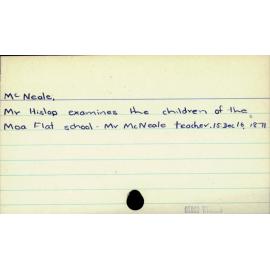 McNeale.
Mr Hislop examines the children of the
Moa Flat school - Mr McNeale teacher. 15 Dec 1871